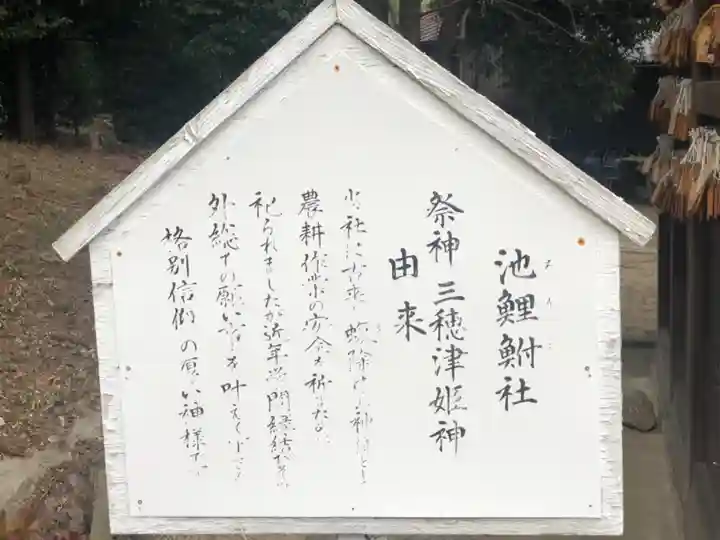 池鯉鮒社
祭神 三穂津姫神
由来
当社は古来 蝮除けの神様とし
農耕作業の安全を祈るため
祀られましたが近年学問縁結びその
外総ての願い事を叶えて下さる
格別信仰の厚い神様です